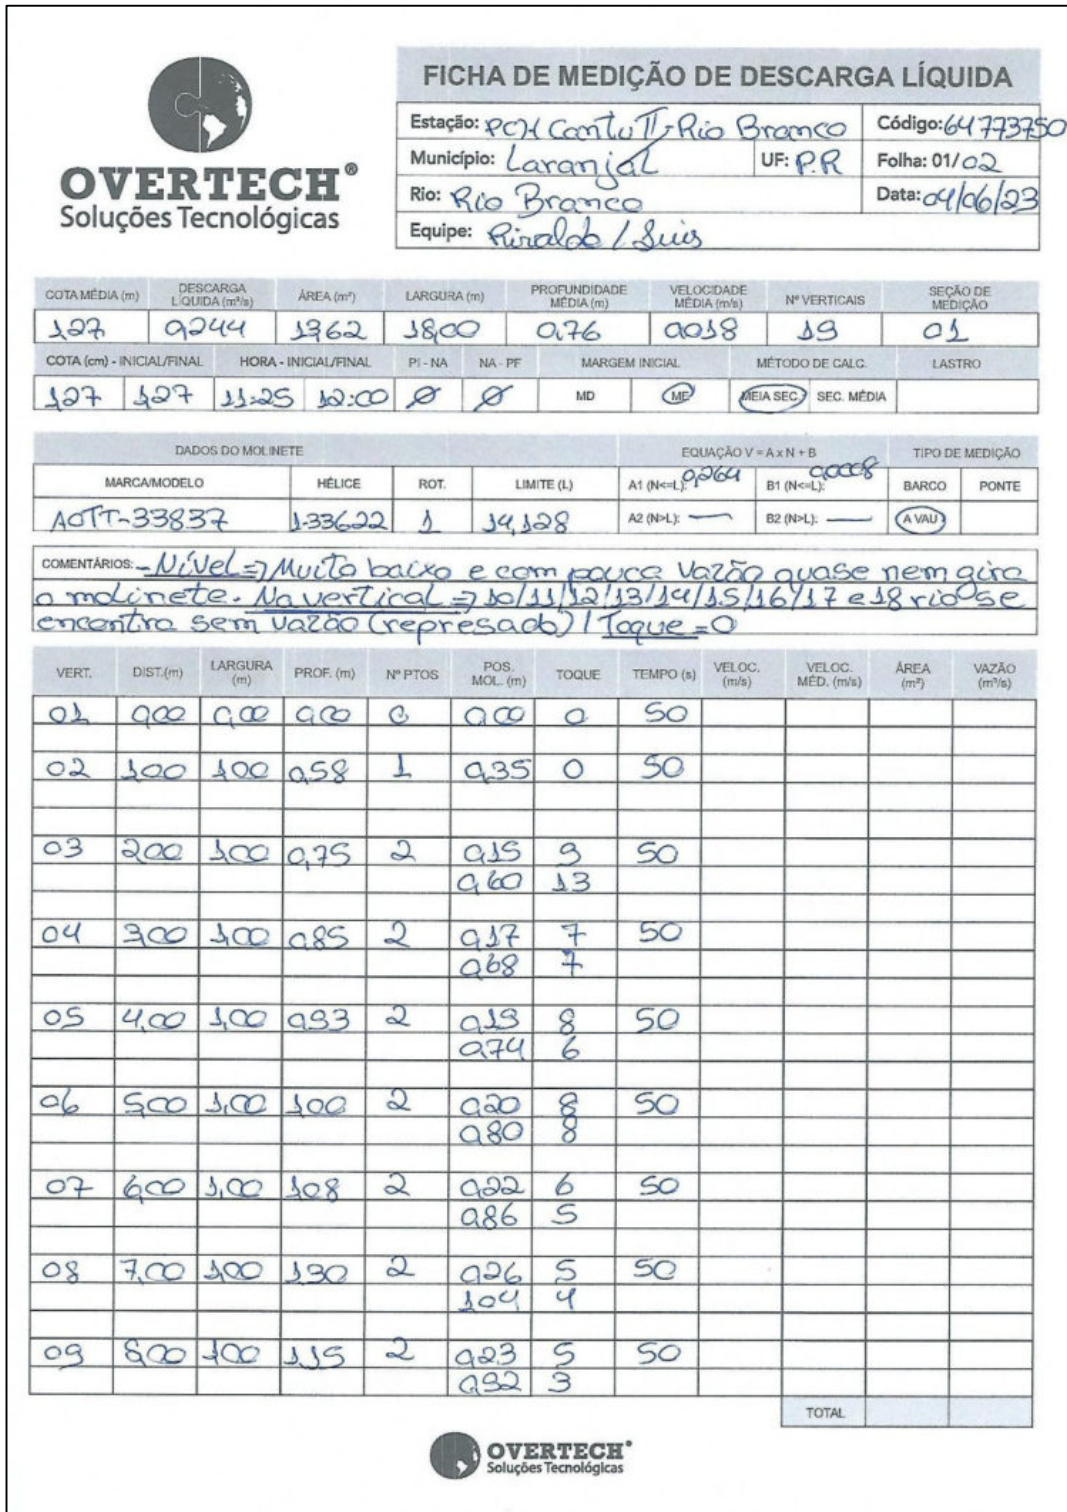 OVERTECH®
Soluções Tecnológicas
FICHA DE MEDIÇÃO DE DESCARGA LÍQUIDA
Estação: PCH Cantu II-Rio Branco Código: 64773750
Município: Laranjal UF: P.R Folha: 01/02
Rio: Rio Branco Data: 04/06/23
Equipe: Rivaldo / Luis
COTA MÉDIA (m) DESCARGA LÍQUIDA (m³/s) ÁREA (m²) LARGURA (m) PROFUNDIDADE MÉDIA (m) VELOCIDADE MÉDIA (m/s) Nº VERTICAIS SEÇÃO DE MEDIÇÃO
1,27 0,244 13,62 18,00 0,76 0,018 19 01
COTA (cm) - INICIAL/FINAL HORA - INICIAL/FINAL PI - NA NA - PF MARGEM INICIAL MÉTODO DE CALC. LASTRO
1,27 1,27 11:25 12:00 Ø Ø MD ME MEIA SEC. SEC. MÉDIA
DADOS DO MOLINETE EQUAÇÃO V = A x N + B TIPO DE MEDIÇÃO
MARCA/MODELO HÉLICE ROT. LIMITE (L) A1 (N<=L): 0,264 B1 (N<=L): 0,0008 BARCO PONTE
AOTT-33837 1-33622 1 14,128 A2 (N>L): — B2 (N>L): — A VAU
COMENTÁRIOS: - Nível => Muito baixo e com pouca vazão quase nem gira
o molinete. Na vertical => 10/11/12/13/14/15/16/17 e 18 rio se
encontra sem vazão (represado) / Toque = 0
VERT. DIST.(m) LARGURA (m) PROF. (m) Nº PTOS POS. MOL. (m) TOQUE TEMPO (s) VELOC. (m/s) VELOC. MÉD. (m/s) ÁREA (m²) VAZÃO (m³/s)
01 0,00 0,00 0,00 0 0,00 0 50
02 1,00 1,00 0,58 1 0,35 0 50
03 2,00 1,00 0,75 2 0,15 9 50
0,60 13
04 3,00 1,00 0,85 2 0,17 7 50
0,68 7
05 4,00 1,00 0,93 2 0,19 8 50
0,74 6
06 5,00 1,00 1,00 2 0,20 8 50
0,80 8
07 6,00 1,00 1,08 2 0,22 6 50
0,86 5
08 7,00 1,00 1,30 2 0,26 5 50
1,04 4
09 8,00 1,00 1,15 2 0,23 5 50
0,92 3
TOTAL
OVERTECH®
Soluções Tecnológicas